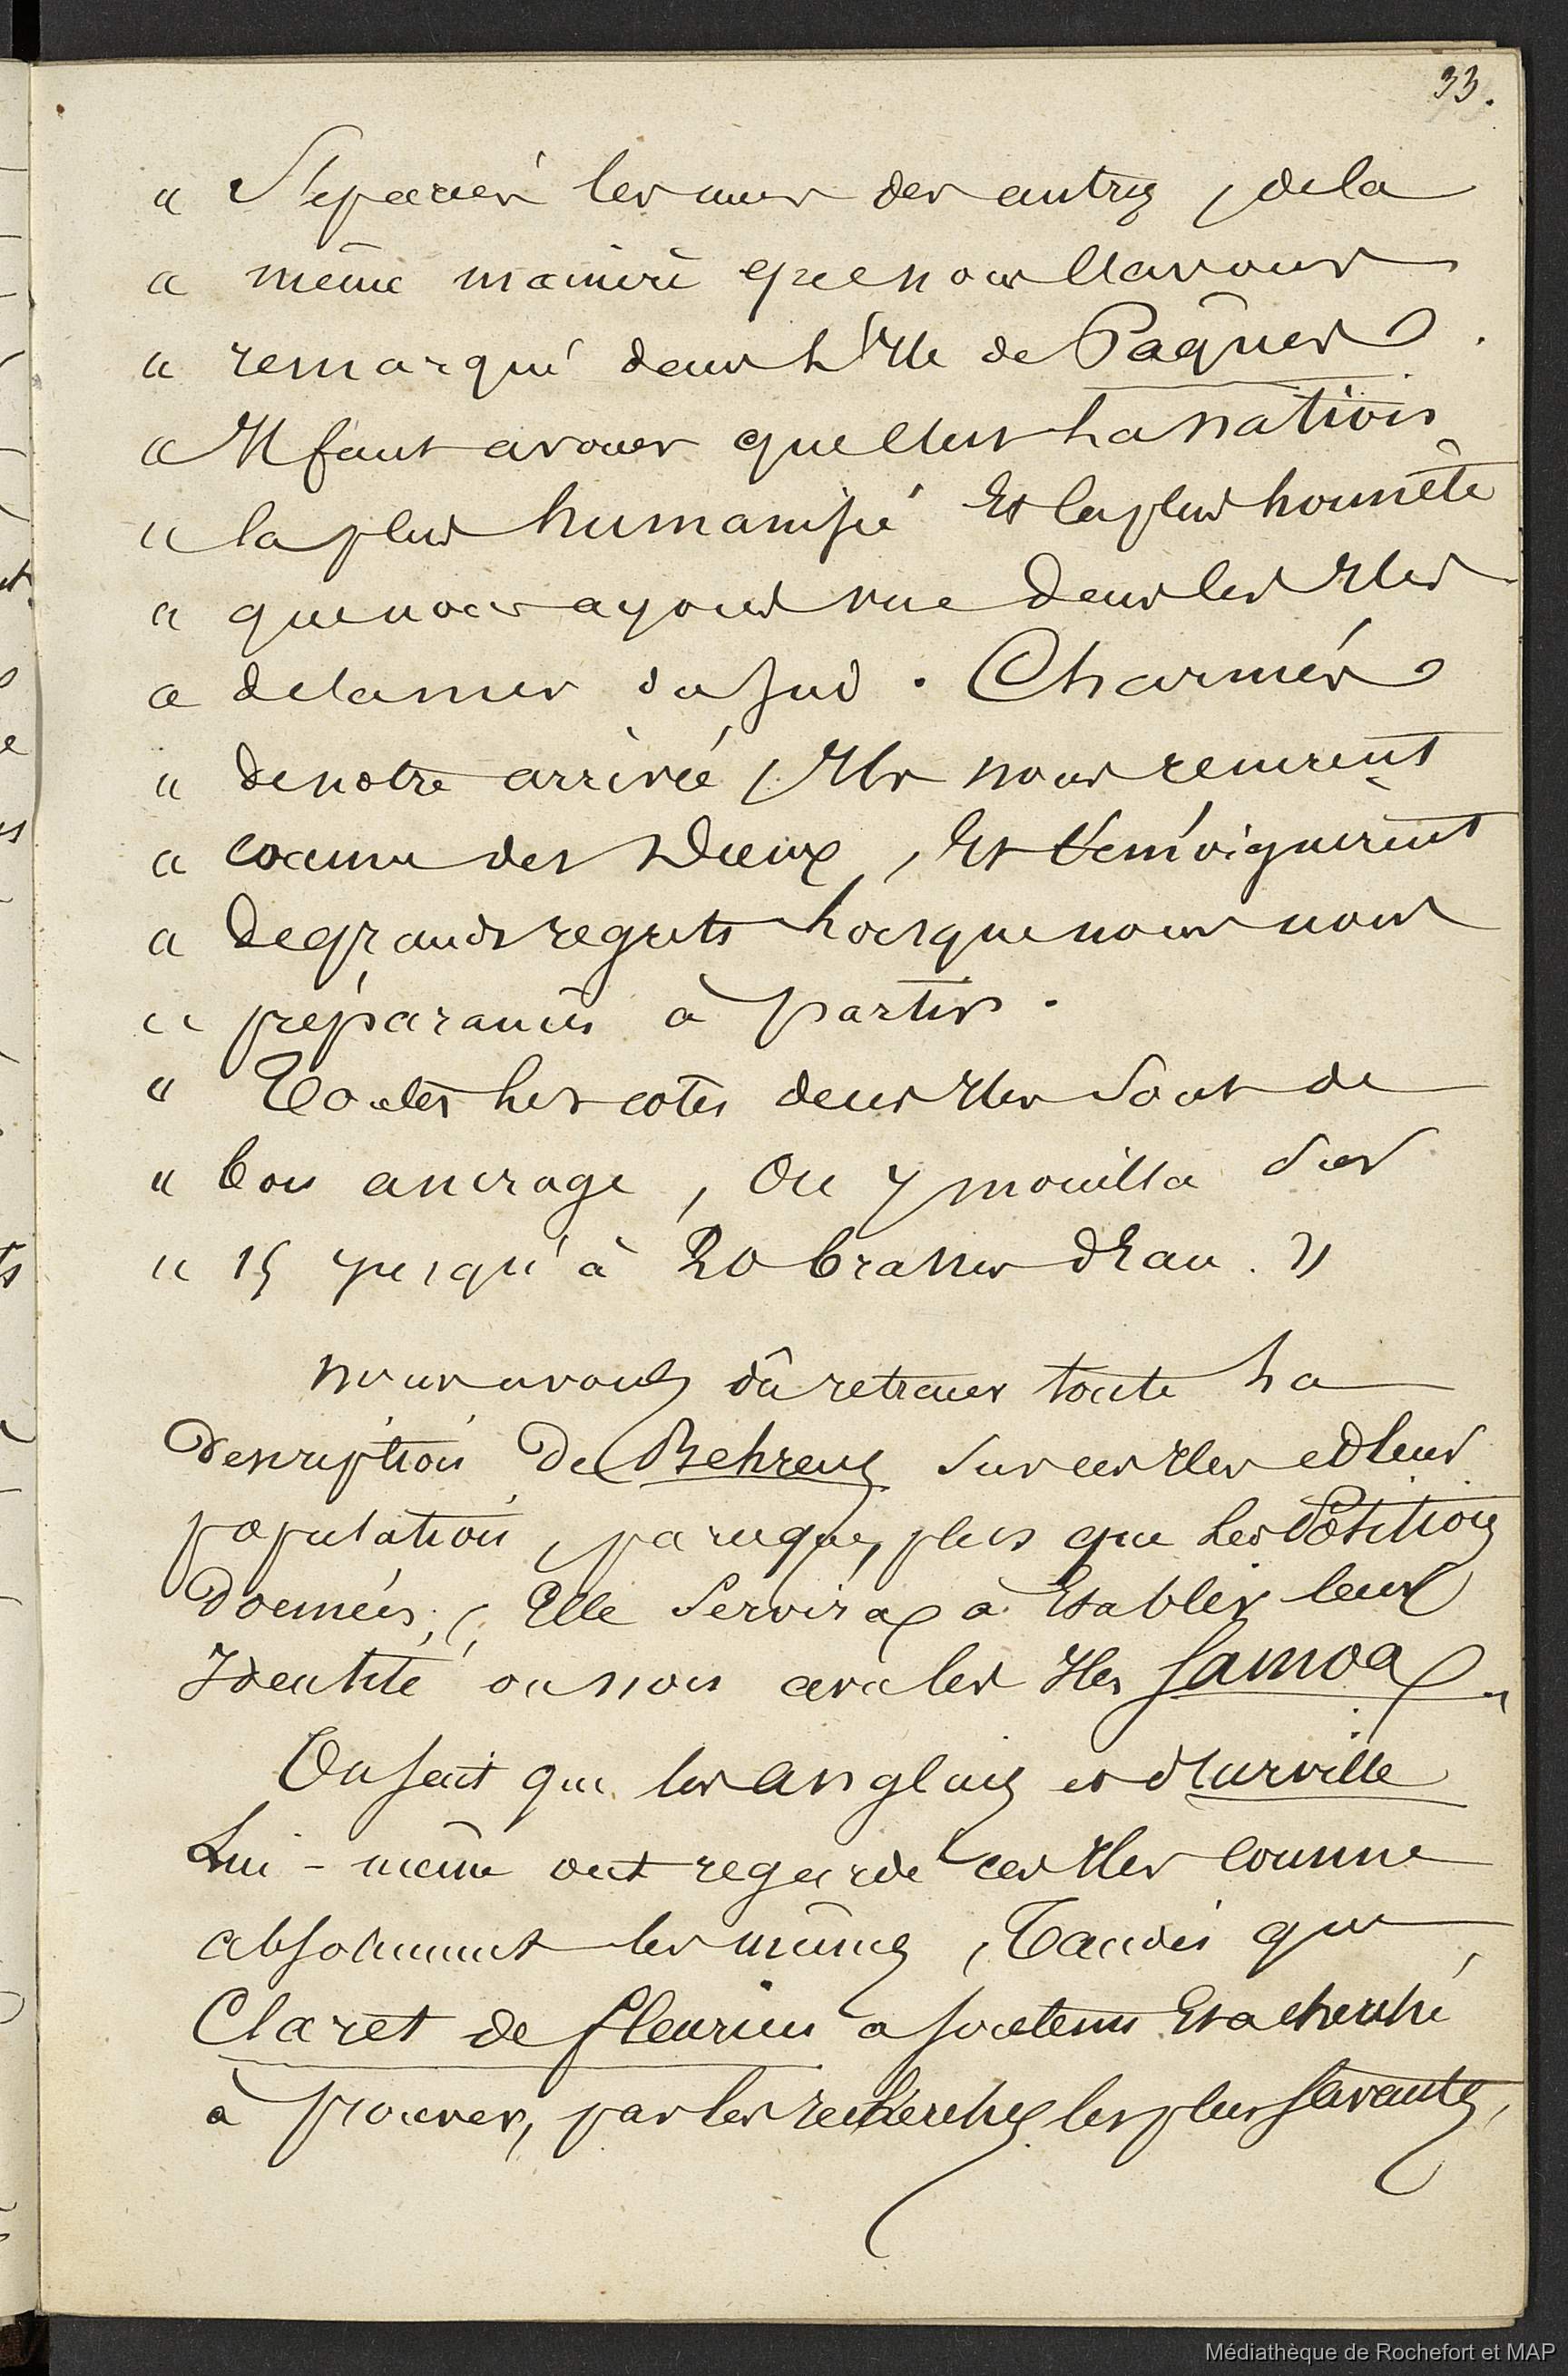 33.
" Séparées les unes des autres, de la
" même manière que nous l'avons
" remarqué dans l'Ile de Pâques.
" Il faut avouer que c'est la nation
" la plus humanisée et la plus honnête
" que nous ayons vue dans les Iles
" de la mer du Sud. Charmés
" de notre arrivée, Ils nous reçurent
" comme des Dieux, et témoignèrent
" de grands regrets lorsque nous nous
" préparames à partir.
" Toutes les cotes de ces Iles sont de
" bon ancrage, On y mouilla sur
" 15 jusqu'à 20 brasses d'Eau. "
nous avons dû retracer toute la
description de Behrens sur ces Iles et leur
population, parceque, plus que les Positions
données, Elle servira à Etablir leur
Identité ou non avec les Iles Samoa.
On sait que les anglais et d'Urville
Lui-même ont regardé ces Iles comme
absolument les mêmes, Tandis que
Claret de fleurieu a soutenu et a cherché
à prouver, par les recherches les plus savantes,
Médiathèque de Rochefort et MAP